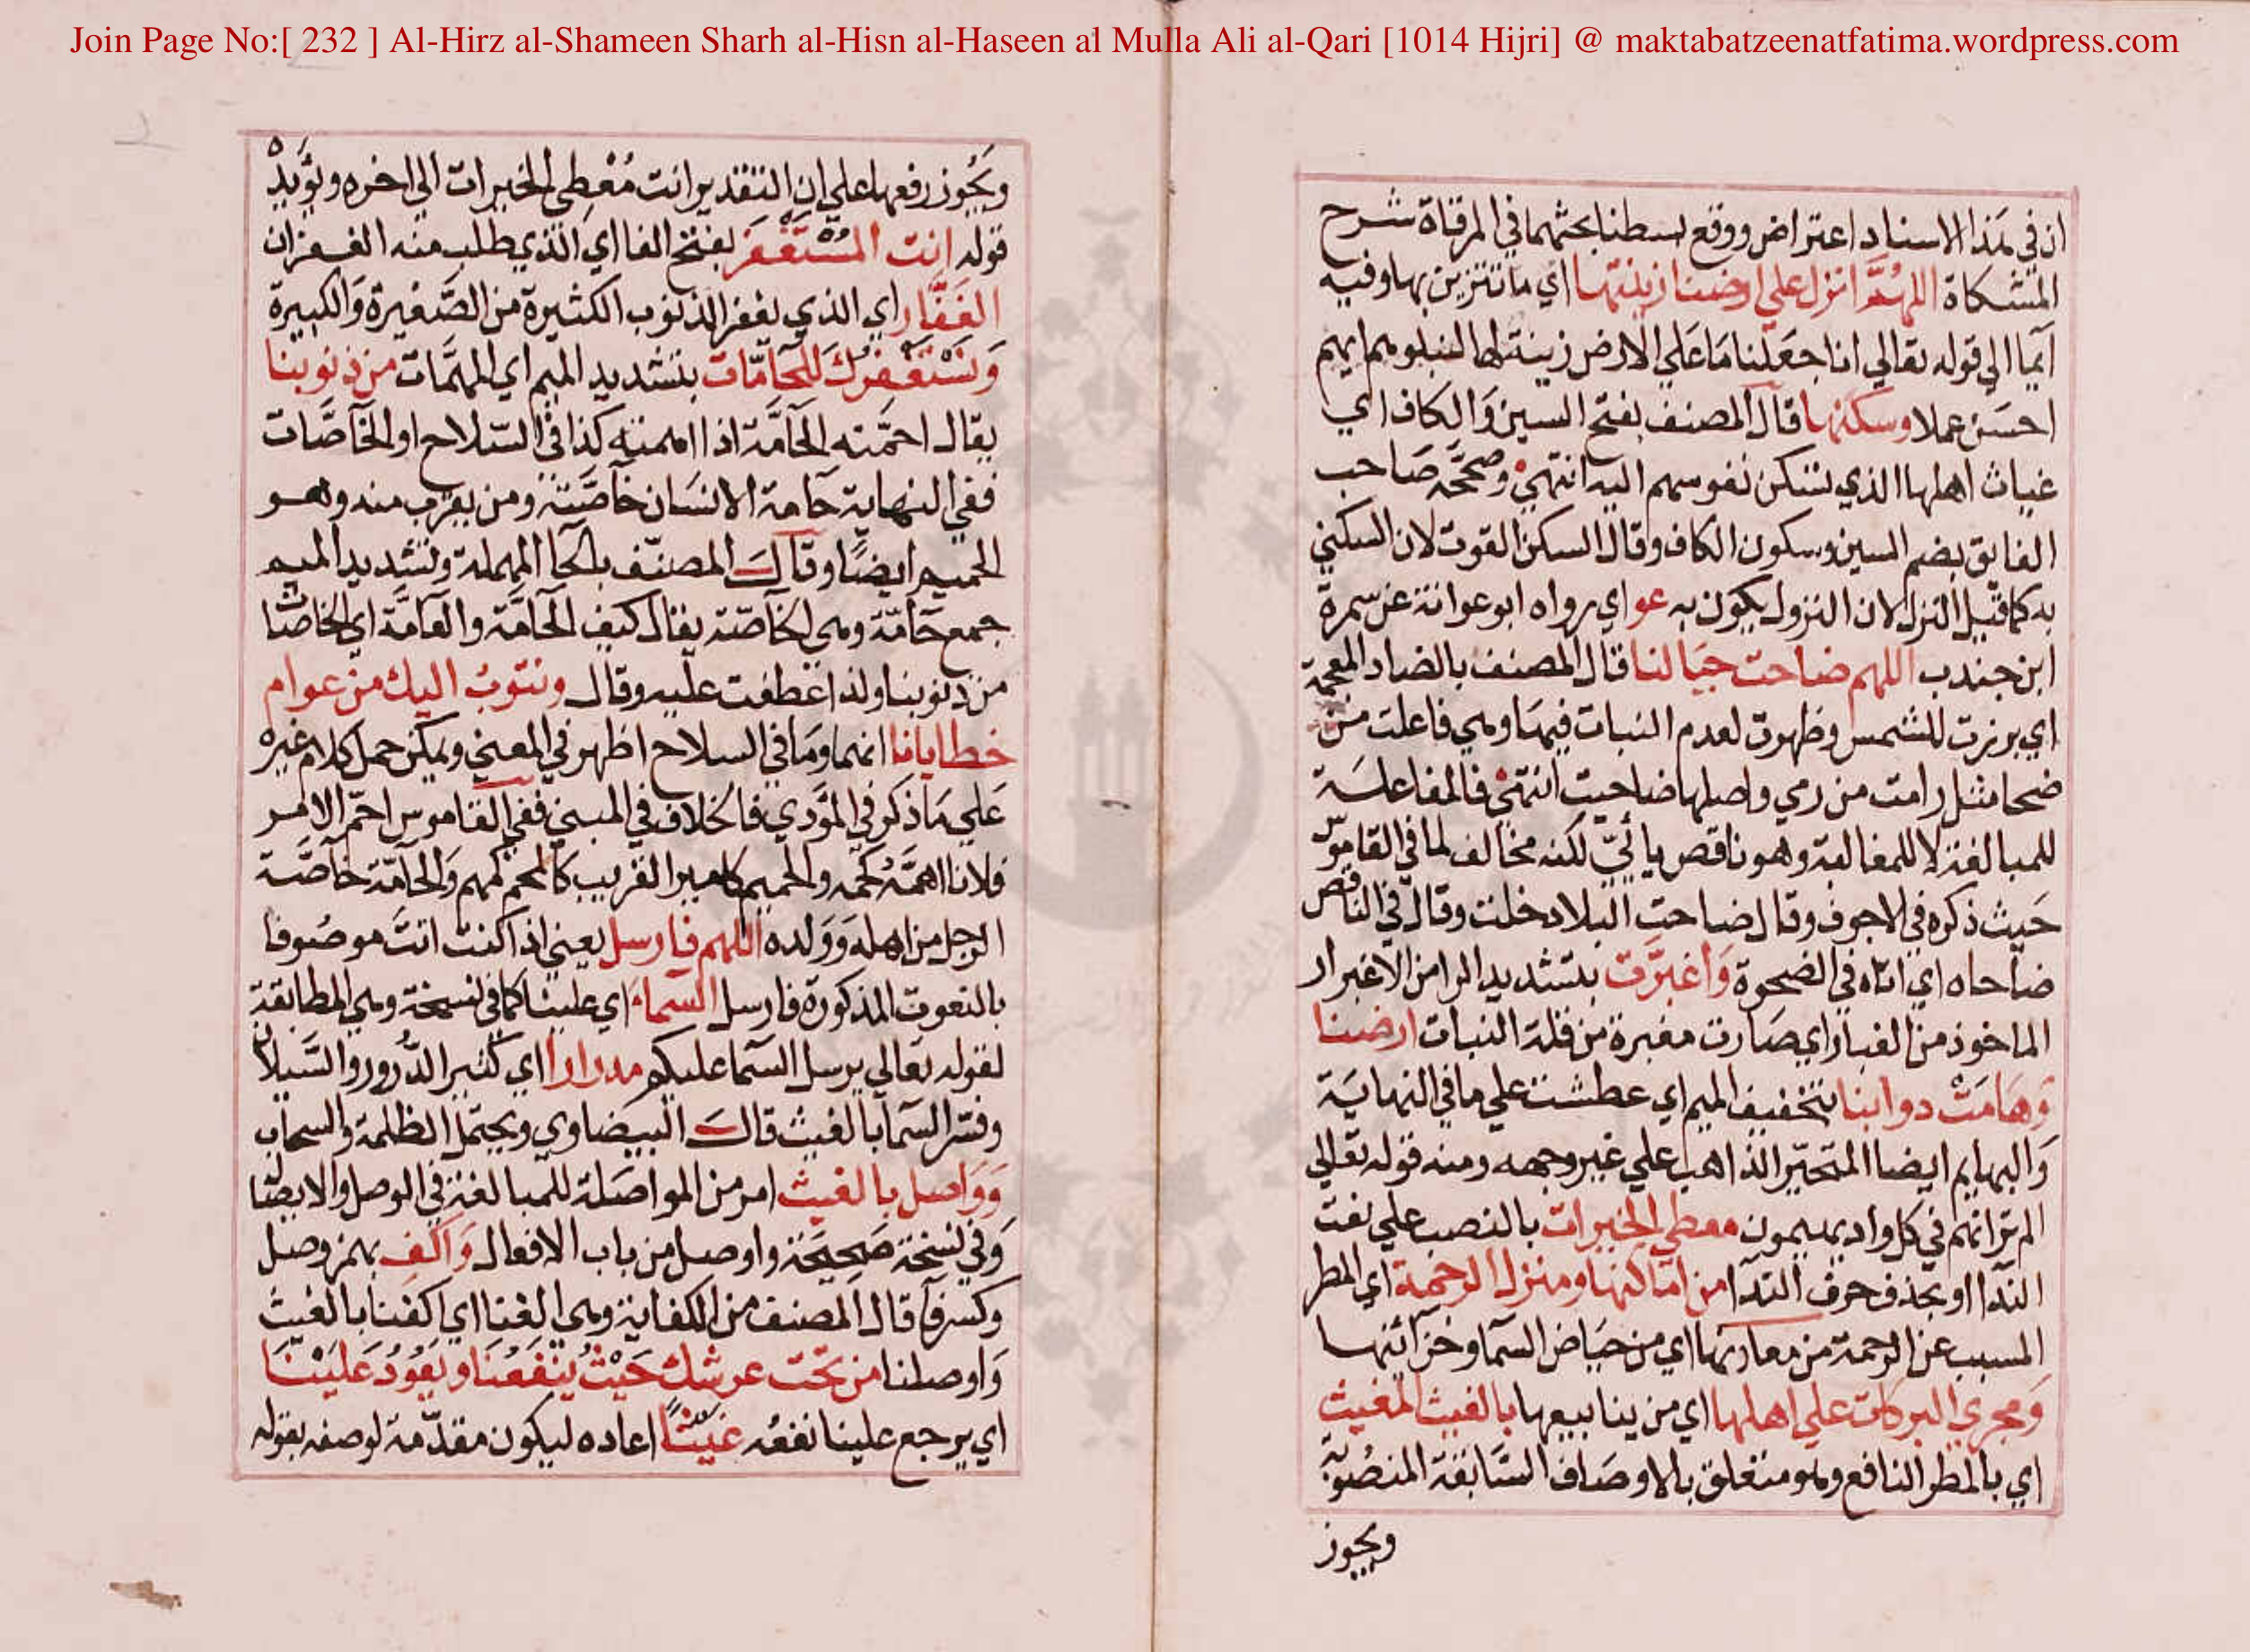 Join Page No:[ 232 ] Al-Hirz al-Shameen Sharh al-Hisn al-Haseen al Mulla Ali al-Qari [1014 Hijri] @ maktabatzeenatfatima.wordpress.com
ان في هذا الاسناد اعتراض ووقع بسطنا بحثهما في المرقاة شرح
المشكاة اللهم انزل علي ارضنا زينتها اي ما تتزين بها وفيه
ايما الي قوله تعالي انا جعلنا ما علي الارض زينة لها لنبلوهم ايهم
احسن عملا وسكنها قال المصنف بفتح السين والكاف اي
غياث اهلها الذي تسكن نفوسهم اليه انتهي وصححه صاحب
الفايق بضم السين وسكون الكاف وقال السكن القوت لان السكني
به كما قيل النزل لان النزول يكون به عو اي رواه ابو عوانة عن سمرة
ابن جندب اللهم ضاحت جبالنا قال المصنف بالضاد المعجمة
اي برزت للشمس وظهرت لعدم النبات فيها وهي فاعلت من
ضحا مثل رامت من رمي واصلها ضاحيت انتهي فالمفاعلة
للمبالغة لا للمغالبة وهو ناقص يائي لكنه مخالف لما في القاموس
حيث ذكره في الاجوف وقال ضاحت البلاد خلت وقال في الناقص
ضاحاه اي اتاه في الضحوة واغبرت بتشديد الرا من الاغبرار
الماخوذ من الغبار اي صارت مغبرة من قلة النبات ارضنا
وهامت دوابنا بتخفيف الميم اي عطشت علي ما في النهاية
والبهايم ايضا المتحير الذاهب علي غير وجهه ومنه قوله تعالي
الم تر انهم في كل واد يهيمون معطي الخيرات بالنصب علي نعت
الندا او بحذف حرف الندا من اماكنها ومنزل الرحمة اي المطر
المسبب عن الرحمة من معادنها اي من حياض السما وخزائنها
ومجري البركات علي اهلها اي من ينابيعها بالغيث المغيث
اي بالمطر النافع وهو متعلق بالاوصاف السابقة المنصوبة
ويجوز
ويجوز رفعها علي ان التقدير انت معطي الخيرات الي اخره ويؤيده
قوله انت المستغفر بفتح الفا اي الذي يطلب منه الغفران
الغفار اي الذي يغفر الذنوب الكثيرة من الصغيرة والكبيرة
ونستغفرك للحامات بتشديد الميم اي المهمات من ذنوبنا
يقال احمته الحامة اذا اهمته كذا في السلاح او الخاصات
ففي النهاية حامة الانسان خاصته ومن يقرب منه وهو
الحميم ايضا وقال المصنف بالحا المهملة وتشديد الميم
جمع حامة وهي الخاصة يقال كيف الحامة والعامة اي الخاصا
من ذنوبنا ولذا عطفت عليه وقال ونتوب اليك من عوام
خطايانا انهما وما في السلاح اظهر في المعني ويمكن حمل كلام غيره
علي ما ذكر في المؤدي فالخلاف في المبني ففي القاموس احم الامر
فلانا اهمه كحمه والحميم كامير القريب كالمحم كمهم والحامة خاصة
الرجل من اهله وولده اللهم فارسل يعني اذا كنت انت موصوفا
بالنعوت المذكورة فارسل السماء اي علينا كما في نسخة وهي المطابقة
لقوله تعالي يرسل السما عليكم مدرارا اي كثير الدرور والسيلان
وفسر السما بالغيث قال البيضاوي ويحتمل الظلمة والسحاب
وواصل بالغيث امر من المواصلة للمبالغة في الوصل والايصا
وفي نسخة صحيحة واوصل من باب الافعال واكف بهمز وصل
وكسر فا قال المصنف من الكفاية وهي الغنا اي اكفنا بالغيث
واوصلنا من تحت عرشك حيث ينفعنا ويعود علينا
اي يرجع علينا نفعه غيثا اعاده ليكون مقدمة لوصفه بقوله